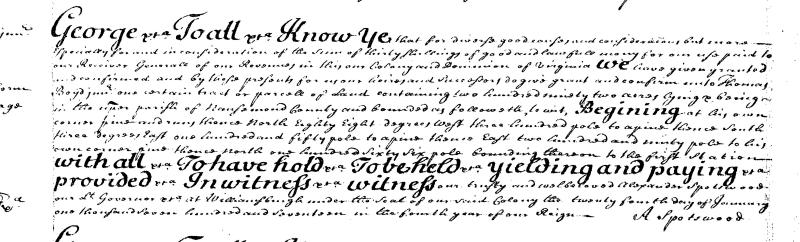 George &c. To all &c. Know Ye that for diverse good causes and considerations but more
Especially for and in consideration of the Sum of thirty shillings of good and lawfull mony for our use paid to
our Receiver Generall of our Revenues in this our Colony and Dominion of Virginia We have given granted
and confirmed and by these presents for us our heirs and Successors do give grant and confirm unto Thomas
Boyd one certain tract or parcell of land containing two hundred ninety two acres lying & being
in the upper parish of Nansemond County and bounded as followeth, to wit, Begining at his own
corner pine and runs thence North Eighty Eight degrees West three hundred pole to a pine thence South
three degrees East one hundred and fifty pole to a pine thence East two hundred and ninty pole to his
own corner pine thence North one hundred Sixty Six pole bounding thereon to the first Station
with all &c. To have hold &c. To be held &c. yielding and paying &c.
provided &c. In witness &c. witness our trusty and welbeloved Alexander Spotswood
our Lt. Governor &c. at Williamsburgh under the Seal of our said Colony the twenty fourth day of January
one thousand seven hundred and seventeen in the fourth year of our Reign
A Spotswood